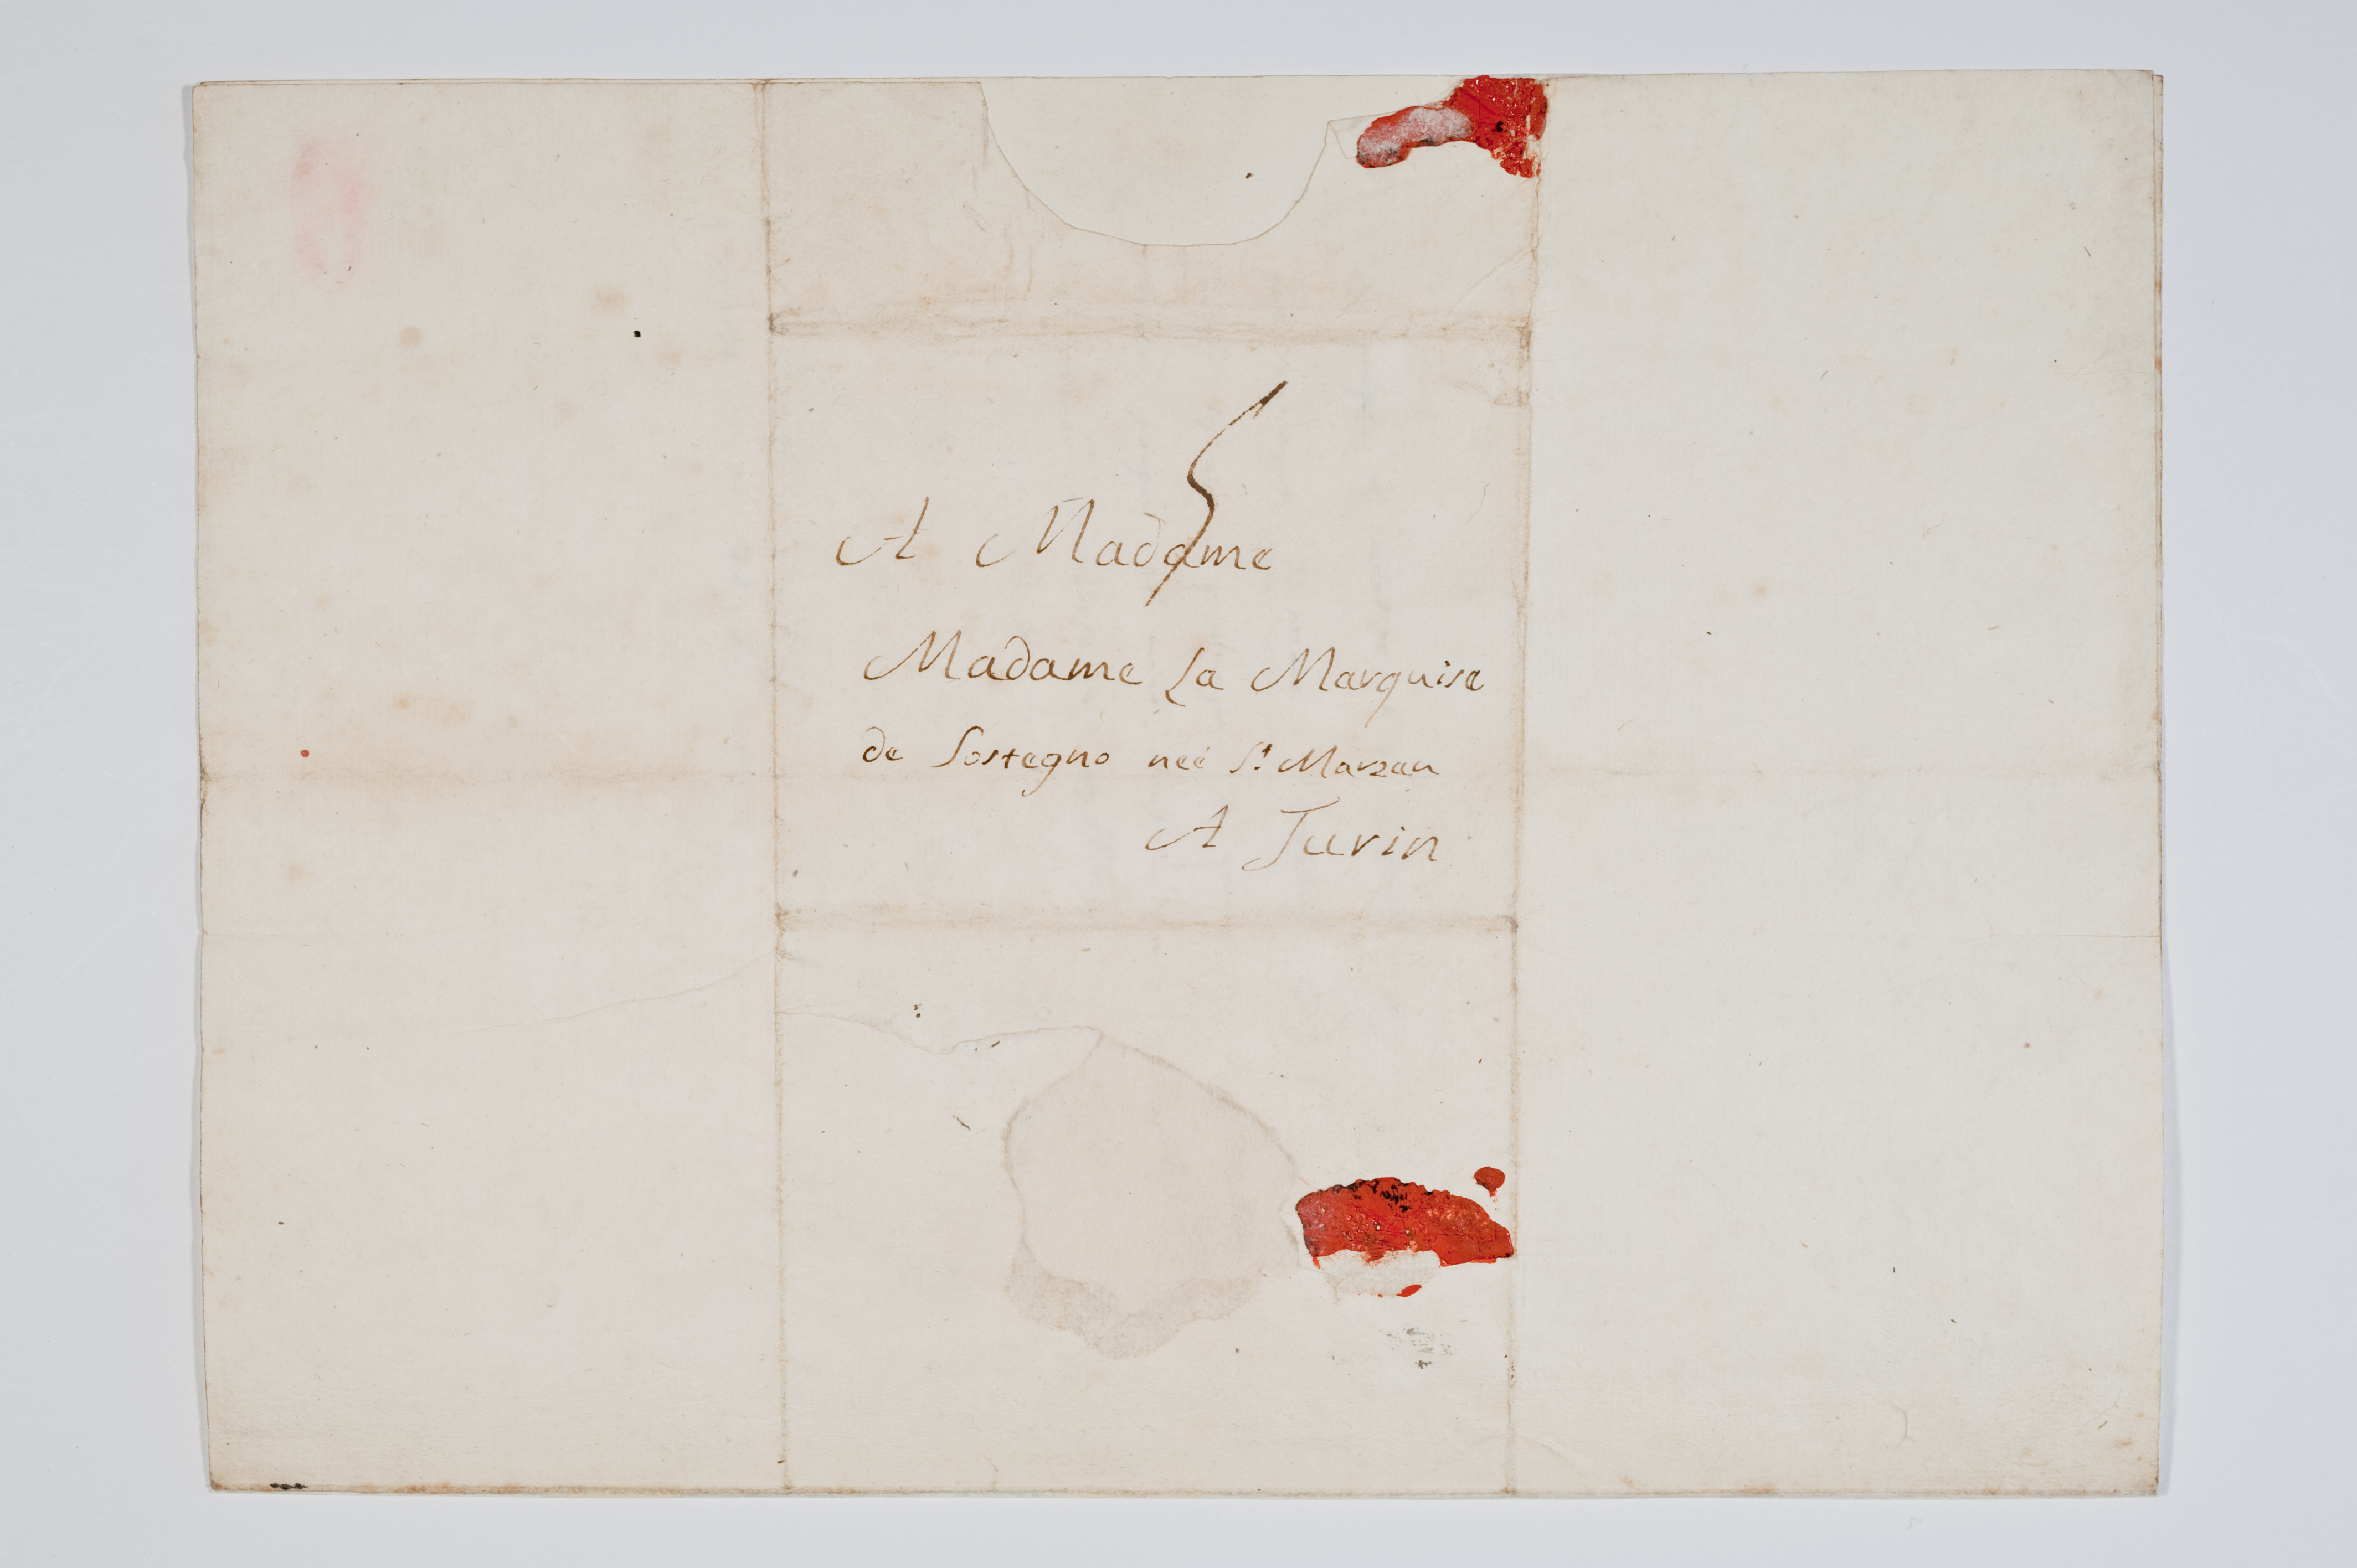 5
A Madame
Madame La Marquise
de Sostegno neé St Marzan
A Turin